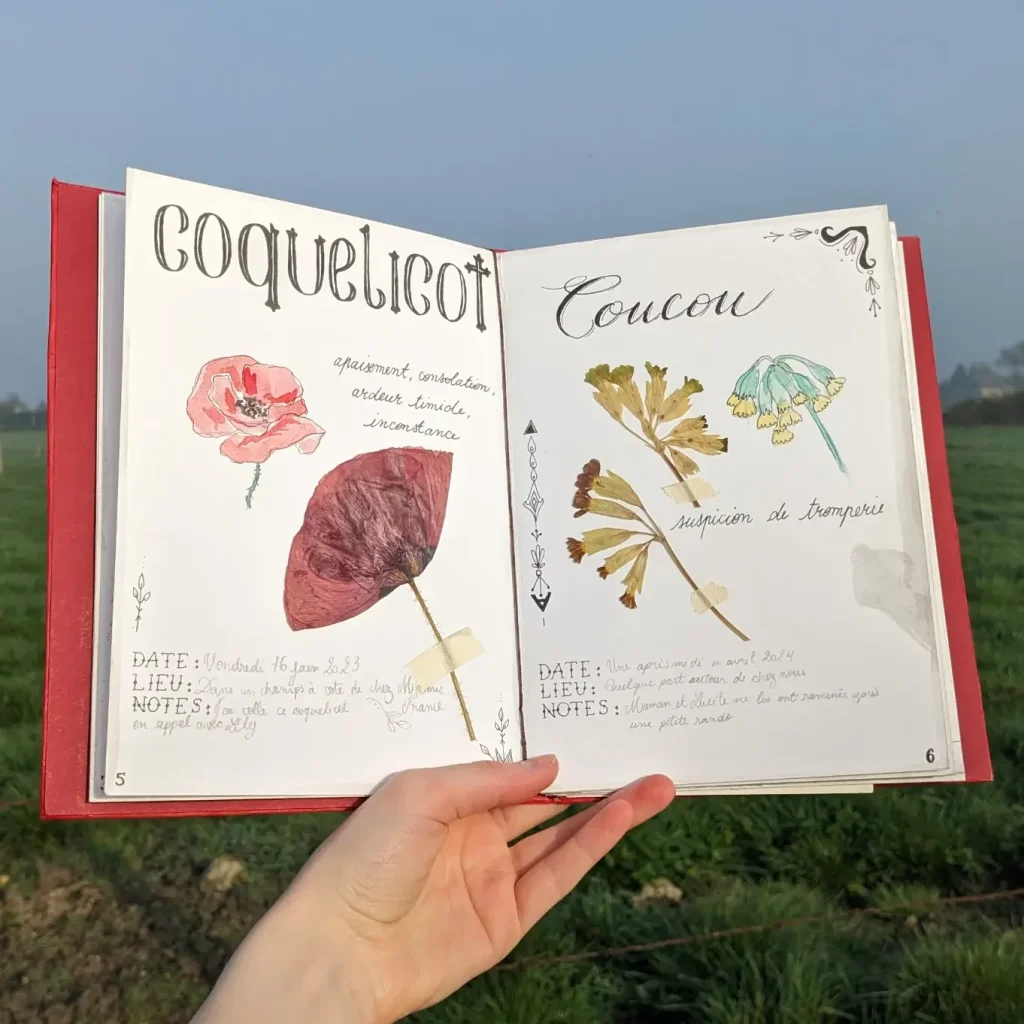 coquelicot
apaisement, consolation,
ardeur timide,
inconstance
DATE : Vendredi 16 juin 2023
LIEU : Dans un champs à côté de chez Mamie
Franie
NOTES : J'ai collé ce coquelicot
en appel avec Lily
5
Coucou
suspicion de tromperie
DATE : Une après midi en avril 2024
LIEU : Quelque part autour de chez nous
NOTES : Maman et Lucile me les ont ramenés après
une petite rando
6